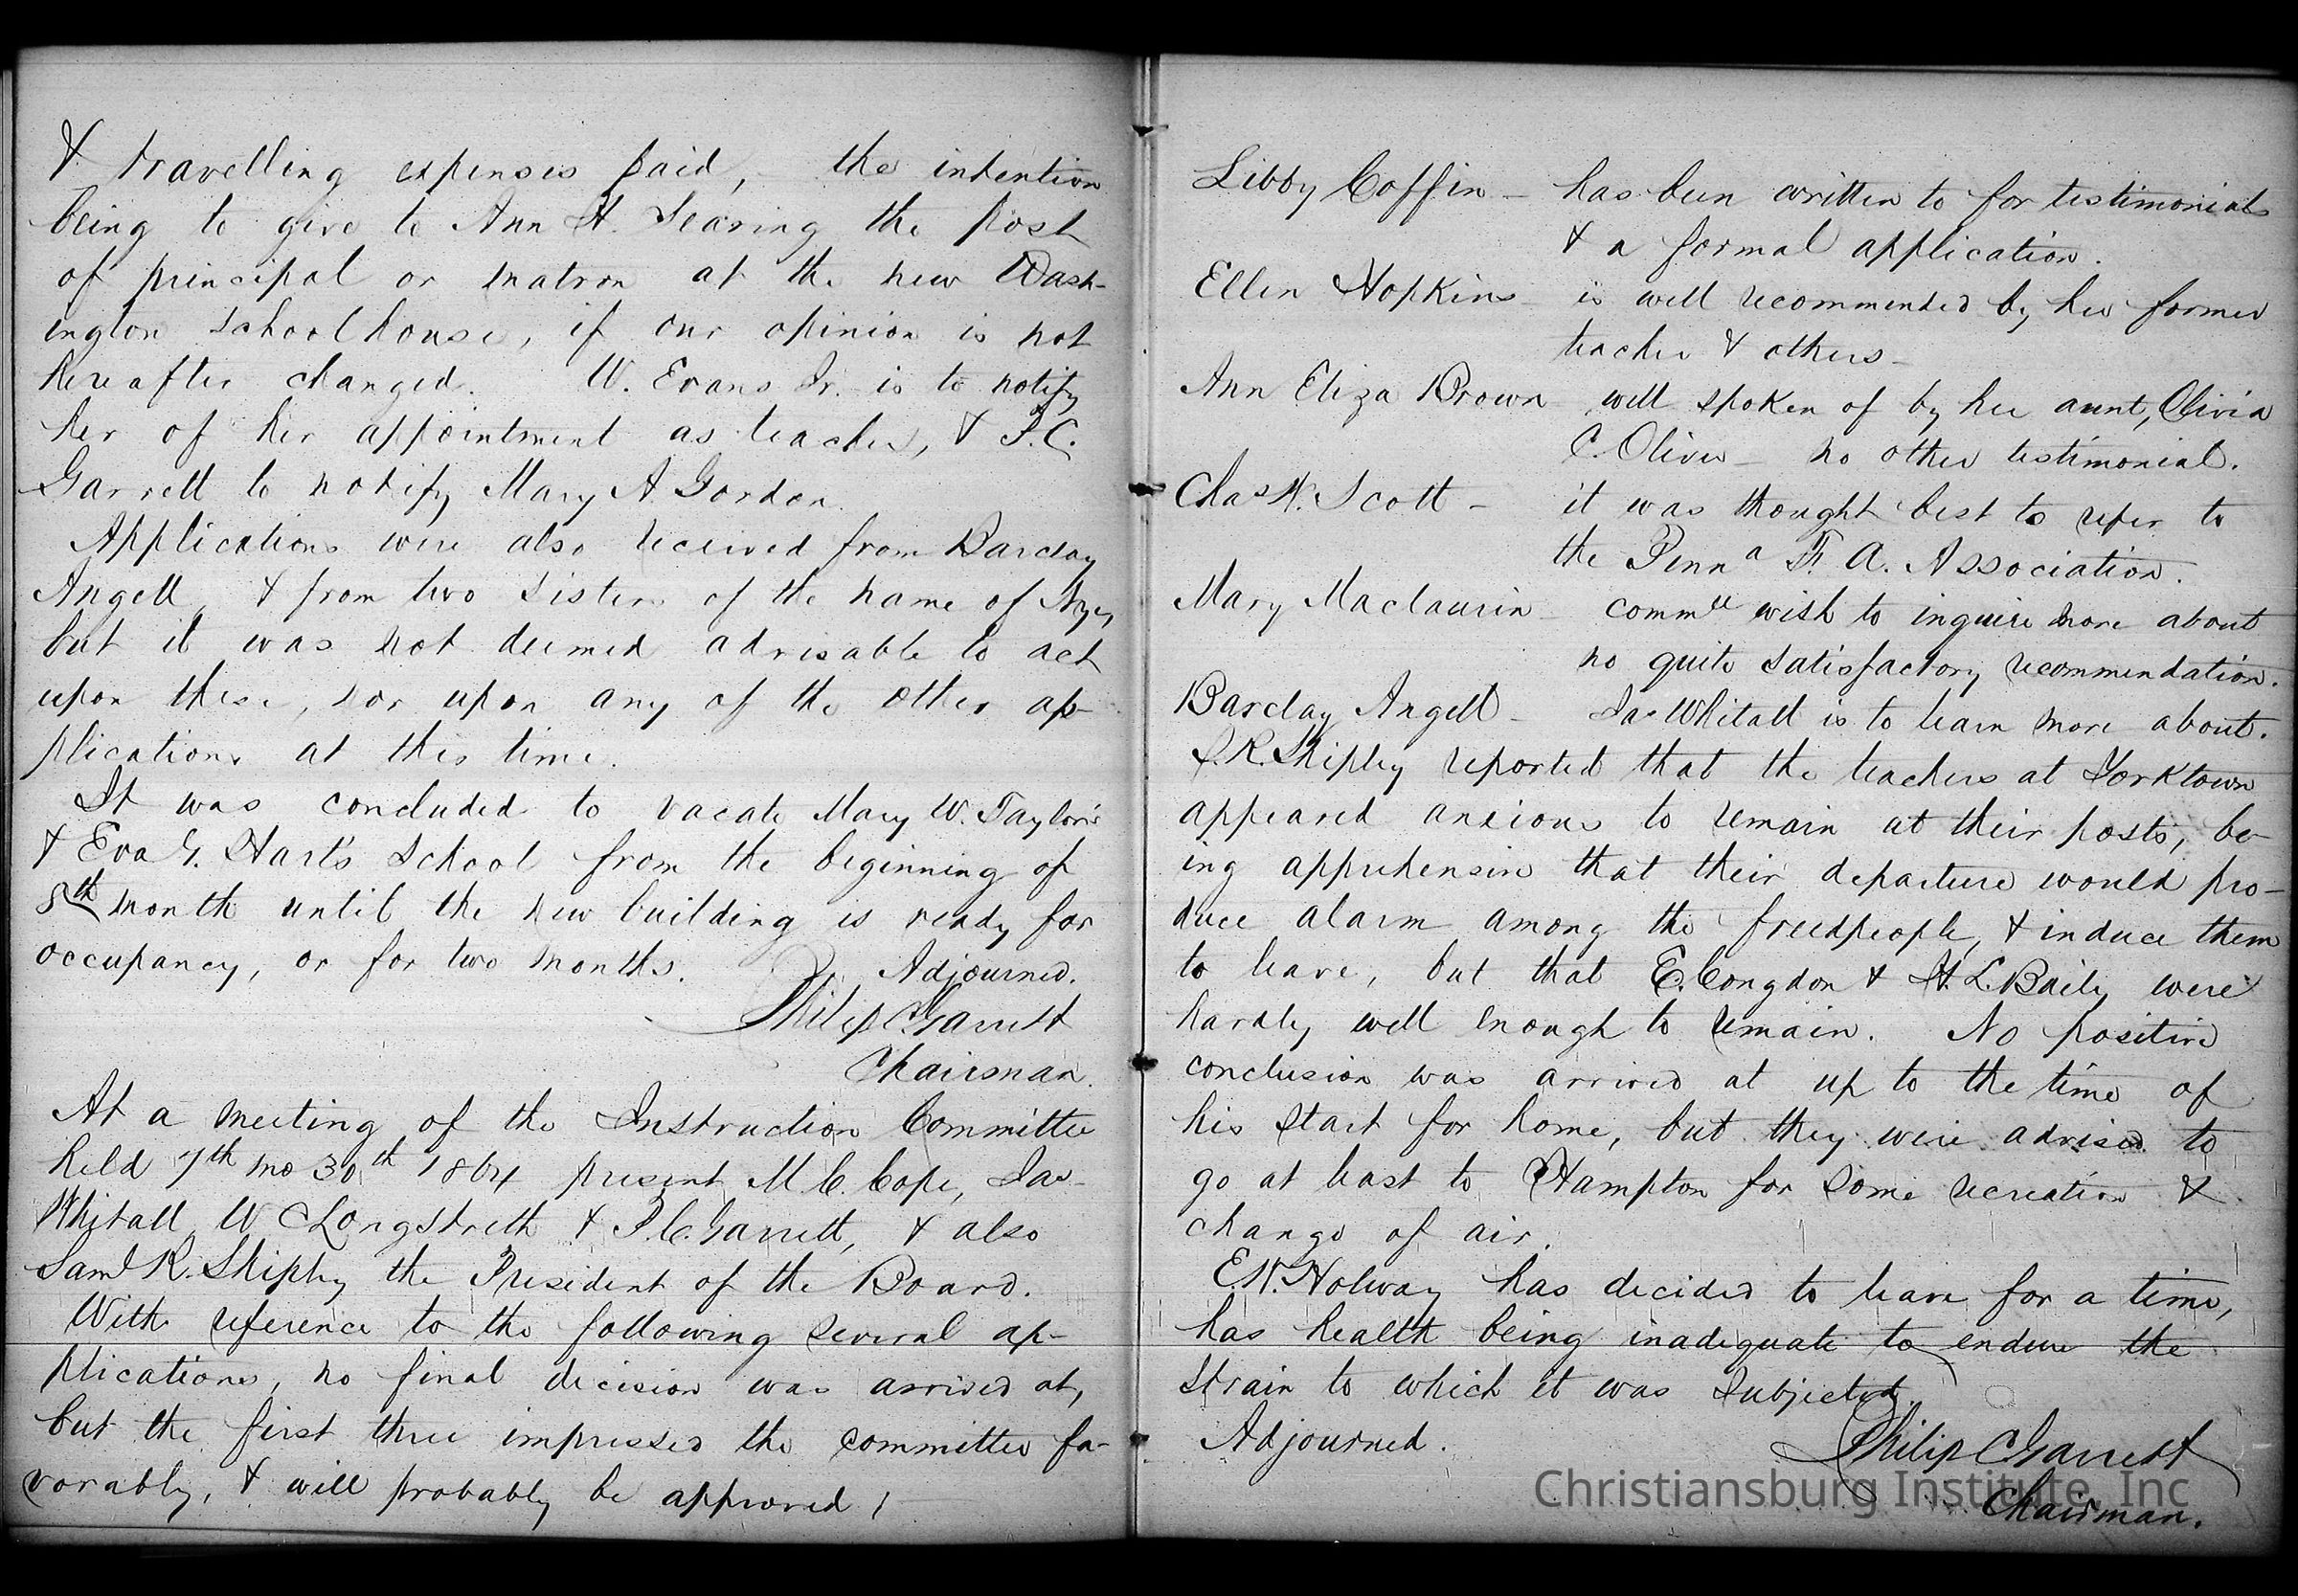 & travelling expenses paid, the intention
being to give to Ann H. Searing the post
of principal or matron at the new Wash-
ington Schoolhouse, if our opinion is not
hereafter changed. W. Evans Jr. is to notify
her of her appointment as teacher, & P.C.
Garrett to notify Mary A Gordon.
Applications were also received from Barclay
Angell, & from two sisters of the name of
but it was not deemed advisable to act
upon these, nor upon any of the other ap-
plications at this time.
It was concluded to vacate Mary W. Taylor's
& Eva G. Hart's School from the beginning of
8th month until the new building is ready for
occupancy, or for two months. Adjourned.
Philip C Garrett
Chairman.
At a meeting of the Instruction Committee
held 7th mo 30th 1864 present M. C. Cope, Jas
Whitall, W C Longstreth & P. C. Garrett, & also
Saml R. Shipley the President of the Board.
With reference to the following several ap-
plications, no final decision was arrived at,
but the first three impressed the committee fa-
vorably, & will probably be approved;
Libby Coffin – has been written to for testimonials
& a formal application.
Ellen Hopkins – is well recommended by her former
teacher & others –
Ann Eliza Brown – well spoken of by her aunt, Olivia
C. Oliver – no other testimonial.
Chas W. Scott – it was thought best to refer to
the Penna F. A. Association.
Mary Maclaurin – commee wish to inquire more about
no quite satisfactory recommendation.
Barclay Angell – Jas Whitall is to learn more about.
S. R. Shipley reported that the teachers at Yorktown
appeared anxious to remain at their posts, be-
ing apprehensive that their departure would pro-
duce alarm among the freedpeople, & induce them
to leave, but that E. Congdon & H. L. Baily were
hardly well enough to remain. No positive
conclusion was arrived at up to the time of
his start for home, but they were advised to
go at least to Hampton for some recreation &
change of air.
E. W. Holway has decided to leave for a time,
has health being inadequate to endure the
strain to which it was subjected.
Adjourned.
Philip C Garrett
Chairman.
Christiansburg Institute, Inc